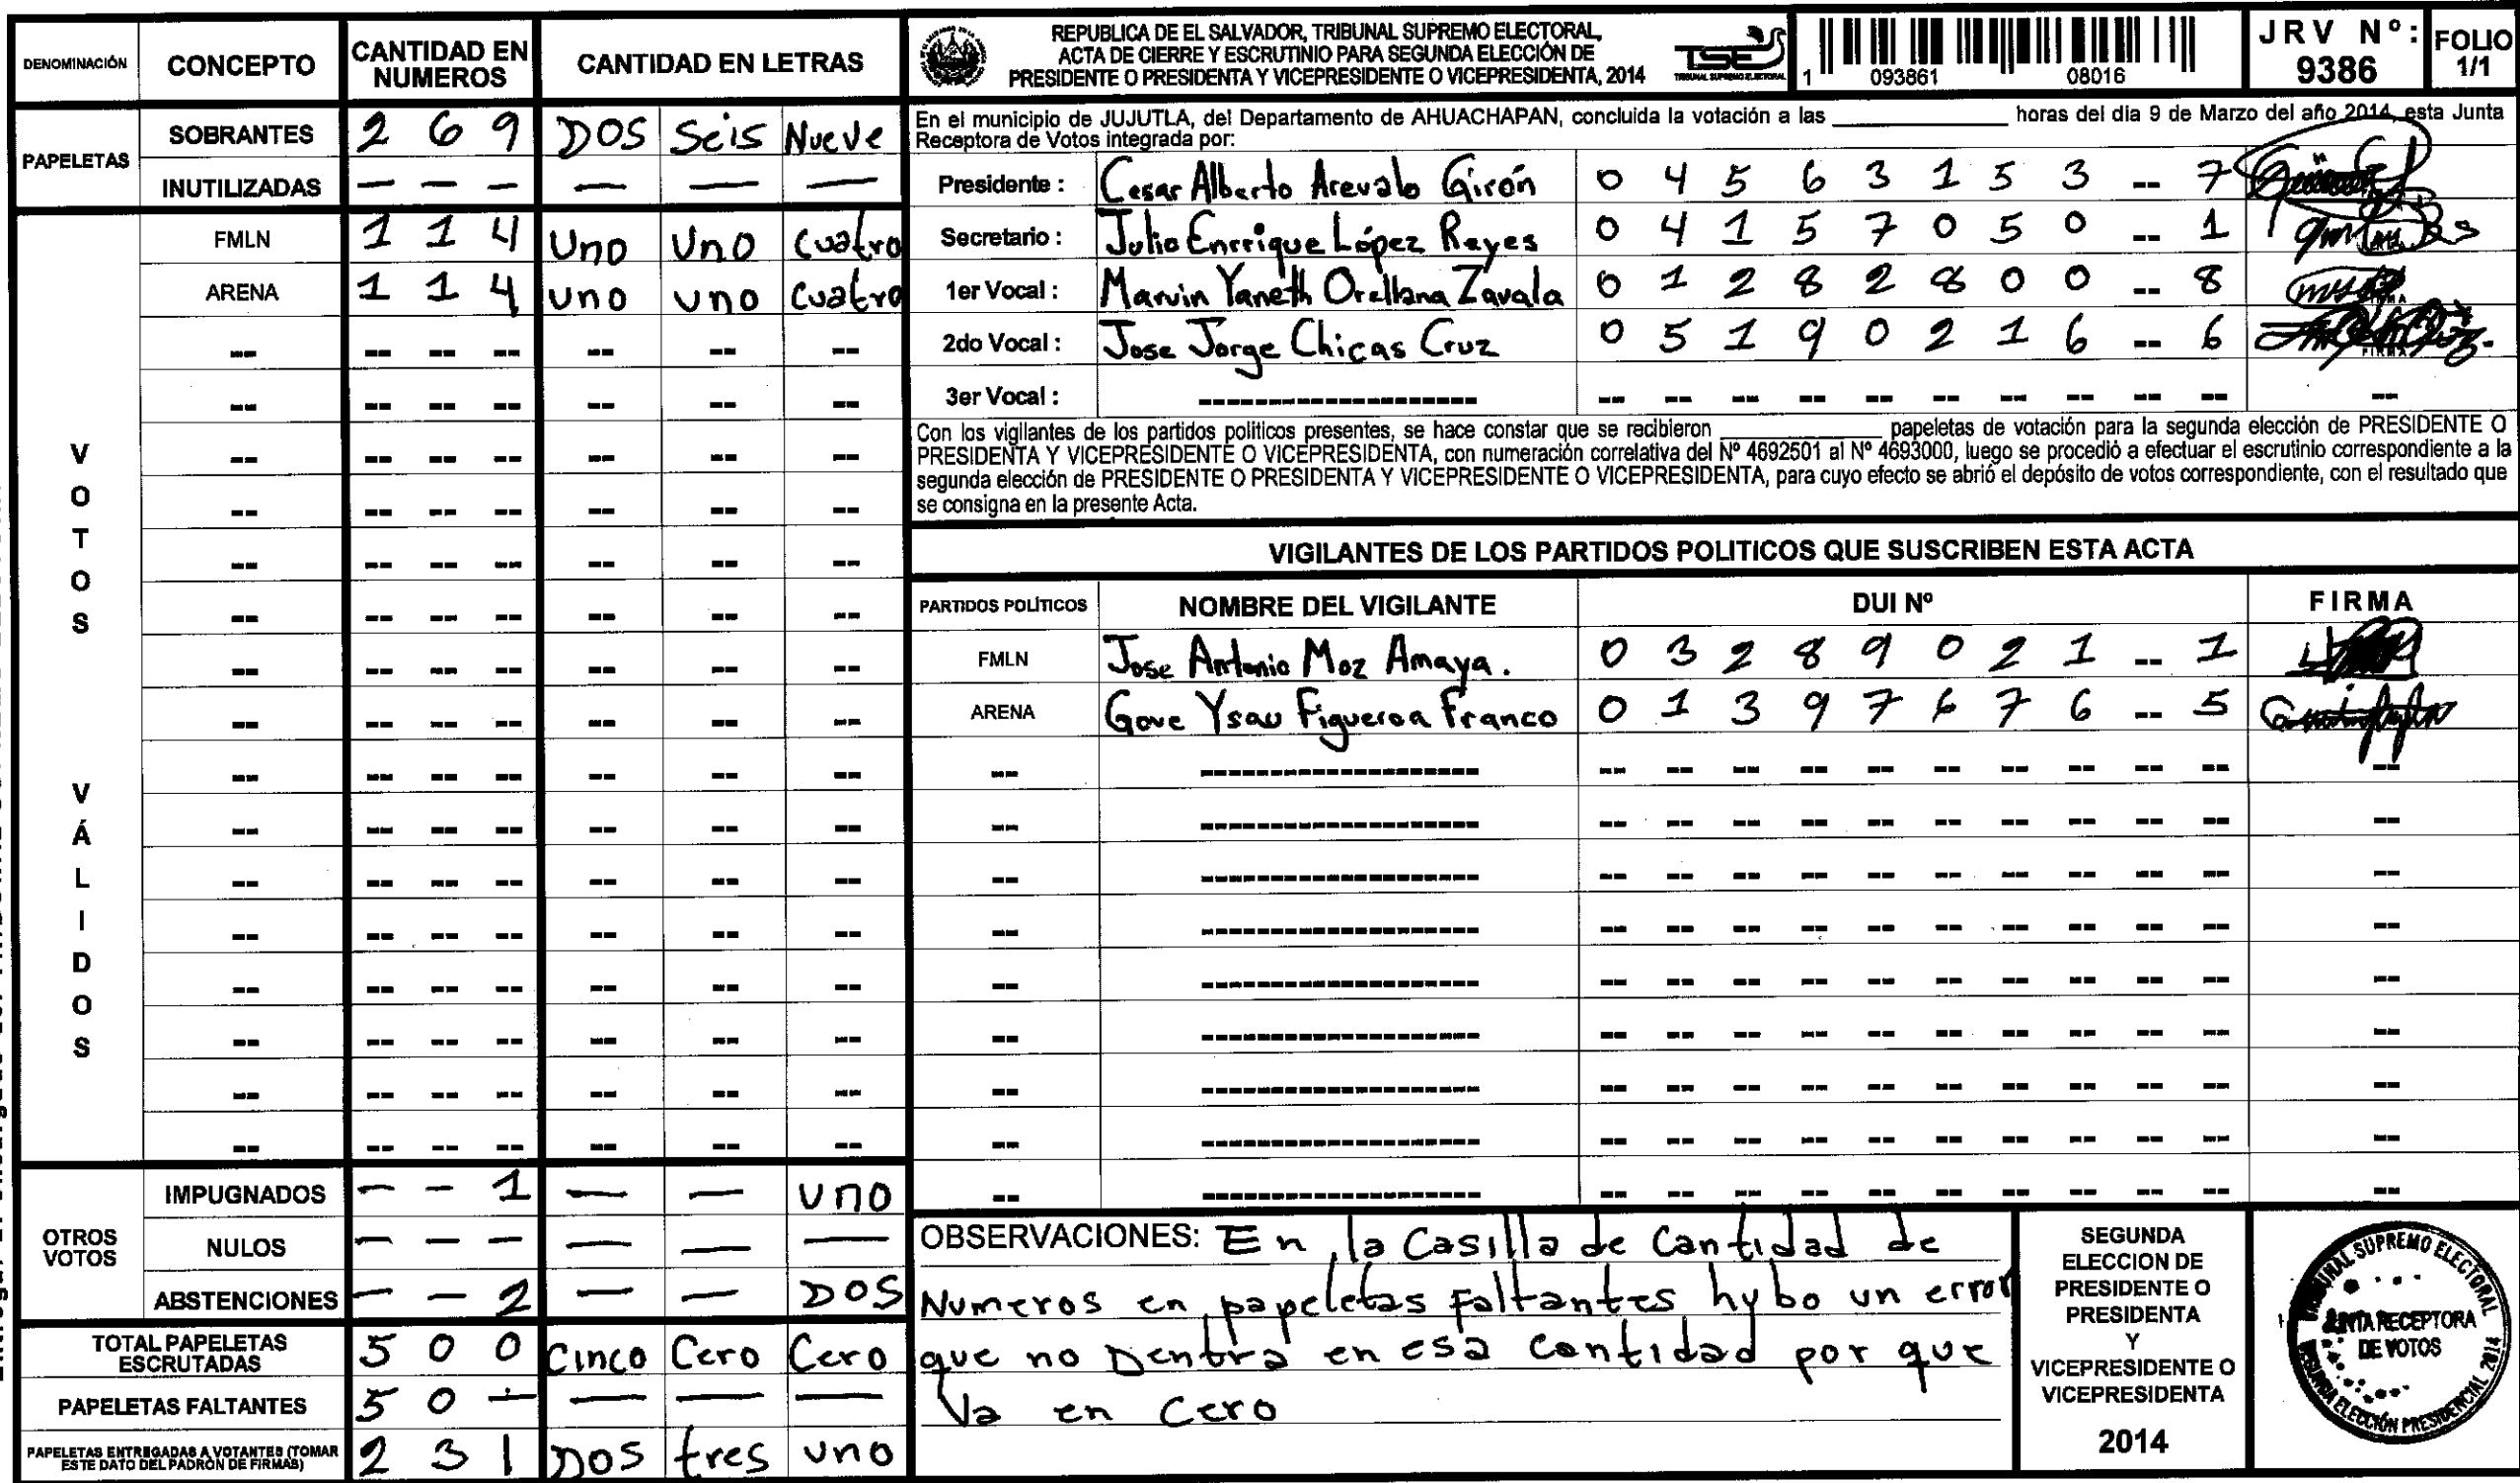 DENOMINACIÓN CONCEPTO CANTIDAD EN NUMEROS CANTIDAD EN LETRAS
PAPELETAS
SOBRANTES 2 6 9 DOS Seis Nueve
INUTILIZADAS — — — — — —
VOTOS VÁLIDOS
FMLN 1 1 4 Uno Uno Cuatro
ARENA 1 1 4 uno uno Cuatro
OTROS VOTOS
IMPUGNADOS — — 1 — — uno
NULOS — — — — — —
ABSTENCIONES — — 2 — — DOS
TOTAL PAPELETAS ESCRUTADAS 5 0 0 Cinco Cero Cero
PAPELETAS FALTANTES 5 0 — — — —
PAPELETAS ENTREGADAS A VOTANTES (TOMAR ESTE DATO DEL PADRÓN DE FIRMAS) 2 3 1 DOS tres uno
REPUBLICA DE EL SALVADOR, TRIBUNAL SUPREMO ELECTORAL,
ACTA DE CIERRE Y ESCRUTINIO PARA SEGUNDA ELECCIÓN DE
PRESIDENTE O PRESIDENTA Y VICEPRESIDENTE O VICEPRESIDENTA, 2014
TSE
TRIBUNAL SUPREMO ELECTORAL
1 093861 08016
JRV Nº: 9386
FOLIO 1/1
En el municipio de JUJUTLA, del Departamento de AHUACHAPAN, concluida la votación a las ____ horas del dia 9 de Marzo del año 2014, esta Junta
Receptora de Votos integrada por:
Presidente : Cesar Alberto Arevalo Girón 0 4 5 6 3 1 5 3 -- 7
Secretario : Julio Enrrique López Reyes 0 4 1 5 7 0 5 0 -- 1
1er Vocal : Marvin Yaneth Orellana Zavala 0 1 2 8 2 8 0 0 -- 8
2do Vocal : Jose Jorge Chicas Cruz 0 5 1 9 0 2 1 6 -- 6
3er Vocal :
Con los vigilantes de los partidos politicos presentes, se hace constar que se recibieron ____ papeletas de votación para la segunda elección de PRESIDENTE O
PRESIDENTA Y VICEPRESIDENTE O VICEPRESIDENTA, con numeración correlativa del Nº 4692501 al Nº 4693000, luego se procedió a efectuar el escrutinio correspondiente a la
segunda elección de PRESIDENTE O PRESIDENTA Y VICEPRESIDENTE O VICEPRESIDENTA, para cuyo efecto se abrió el depósito de votos correspondiente, con el resultado que
se consigna en la presente Acta.
VIGILANTES DE LOS PARTIDOS POLITICOS QUE SUSCRIBEN ESTA ACTA
PARTIDOS POLÍTICOS NOMBRE DEL VIGILANTE DUI Nº FIRMA
FMLN Jose Antonio Moz Amaya. 0 3 2 8 9 0 2 1 -- 1
ARENA Gove Ysau Figueroa Franco 0 1 3 9 7 6 7 6 -- 5
OBSERVACIONES: En la Casilla de Cantidad de
Numeros en papeletas Faltantes hybo un error
que no Dentra en esa Cantidad por que
Va en Cero
SEGUNDA
ELECCION DE
PRESIDENTE O
PRESIDENTA
Y
VICEPRESIDENTE O
VICEPRESIDENTA
2014
TRIBUNAL SUPREMO ELECTORAL
JUNTA RECEPTORA
DE VOTOS
SEGUNDA ELECCIÓN PRESIDENCIAL 2014